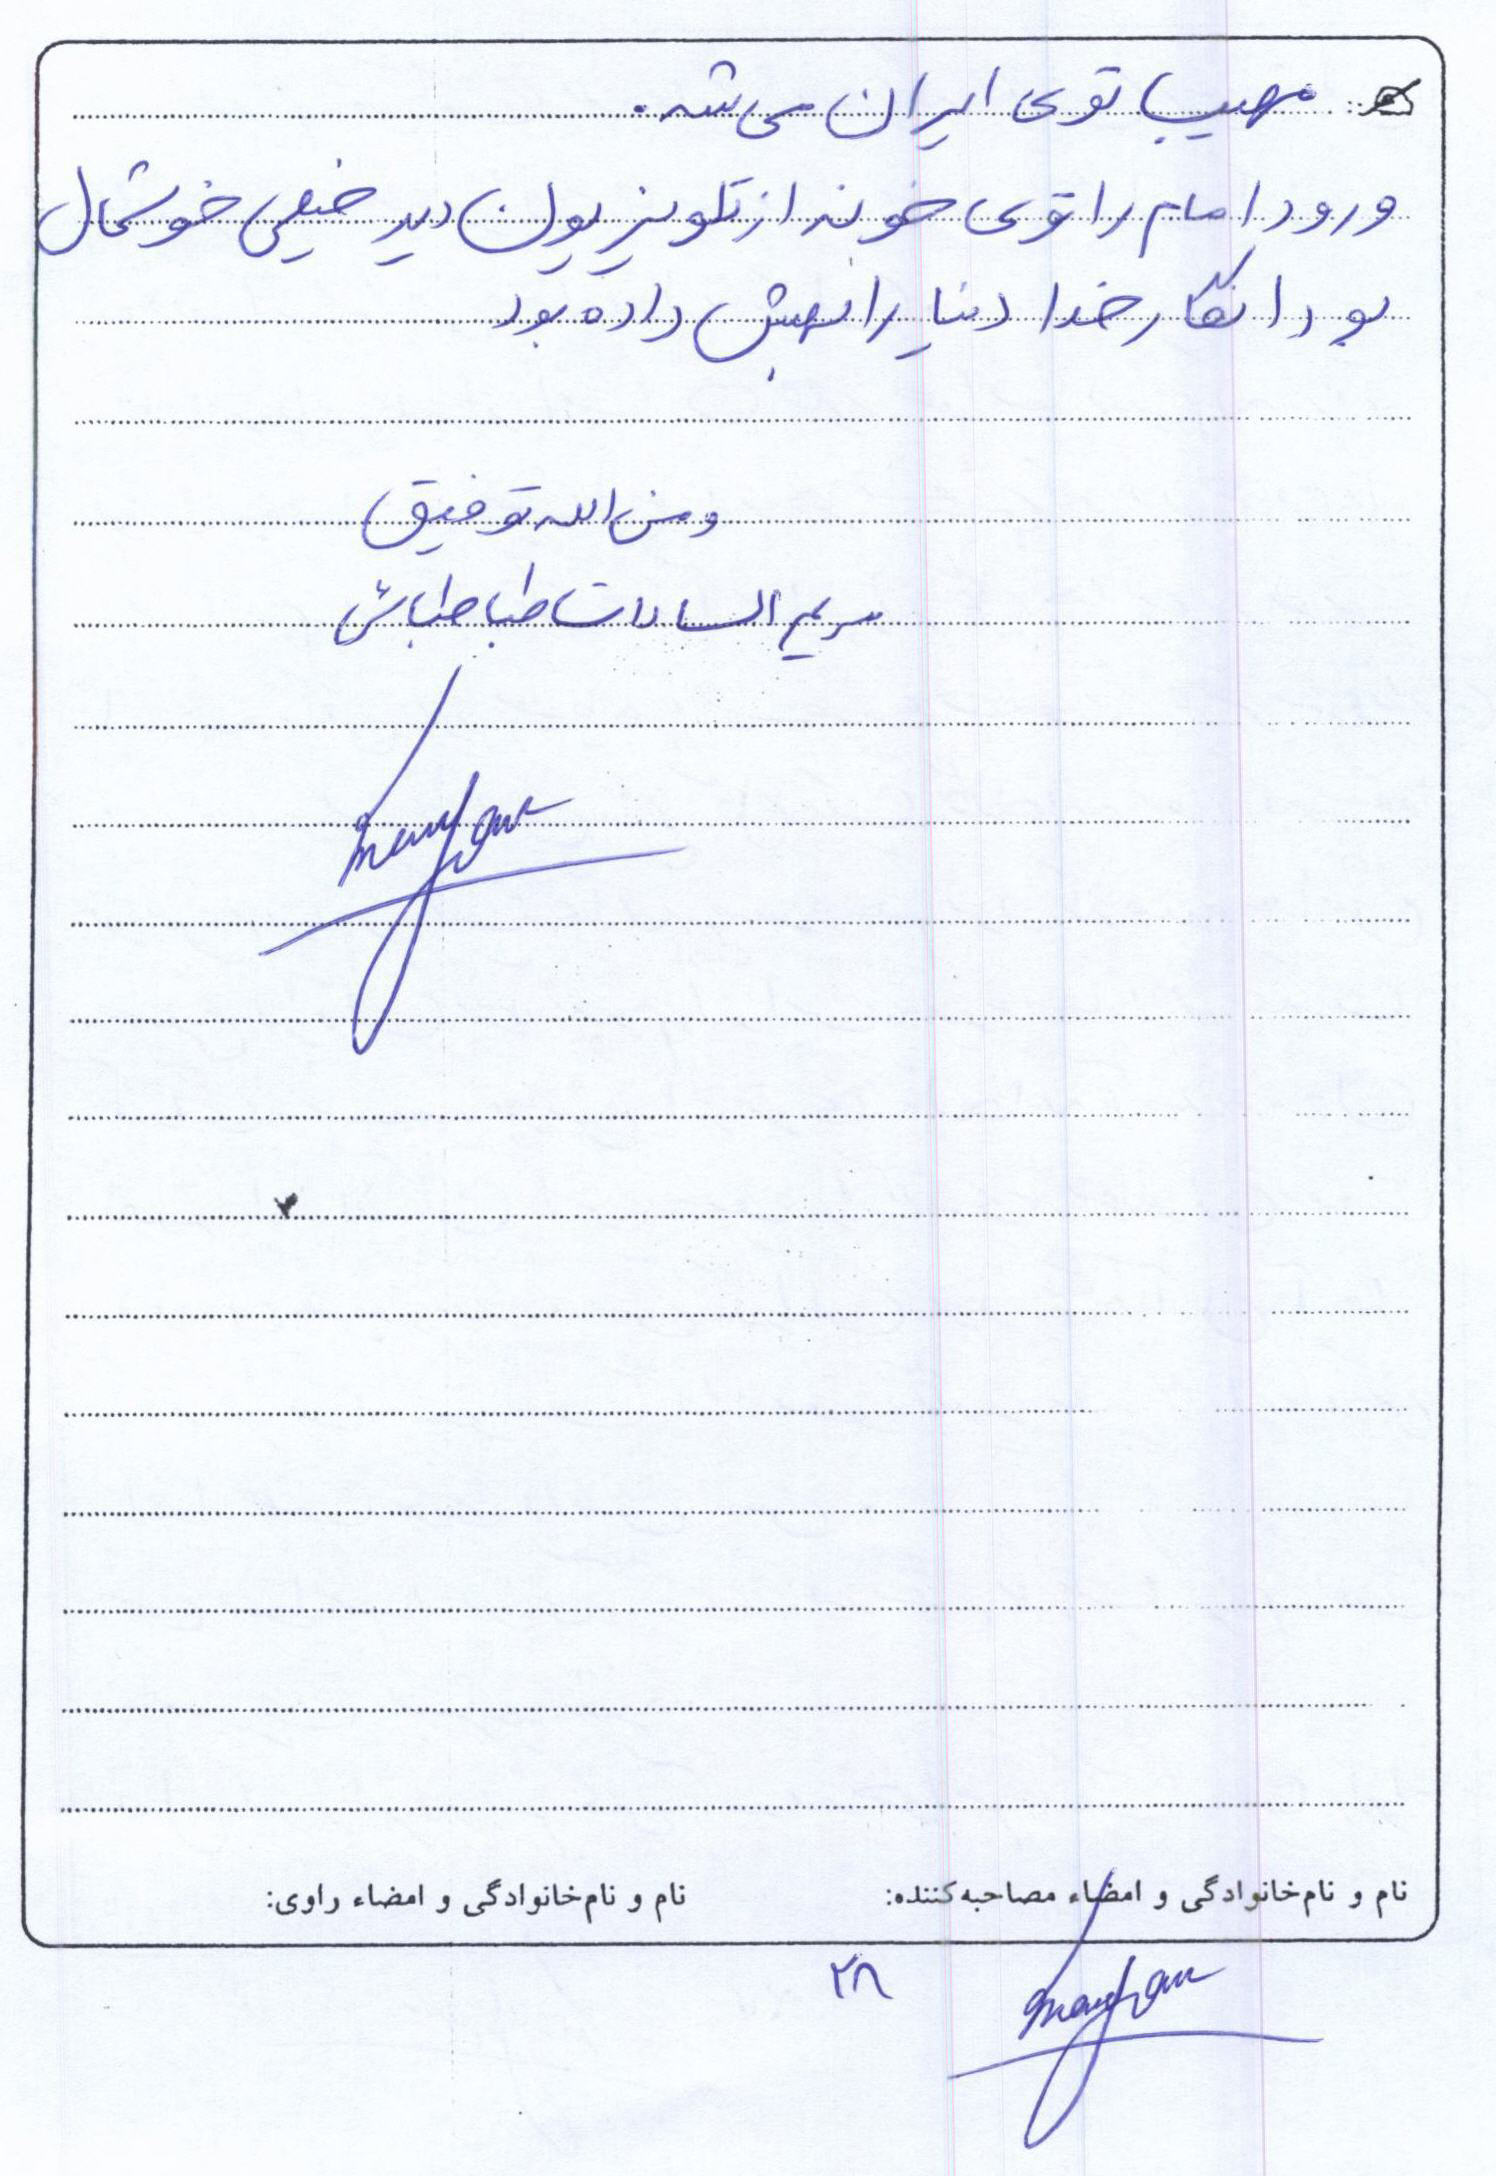 مهیب توی ایران می شه.
ورود امام را توی خونه از تلویزیون دید خیلی خوشحال
بود انگار خدا دنیا را بهش داده بود
و من الله توفیق
مریم السادات طباطبائی
نام و نام‌خانوادگی و امضاء مصاحبه‌کننده:
نام و نام‌خانوادگی و امضاء راوی:
۲۸